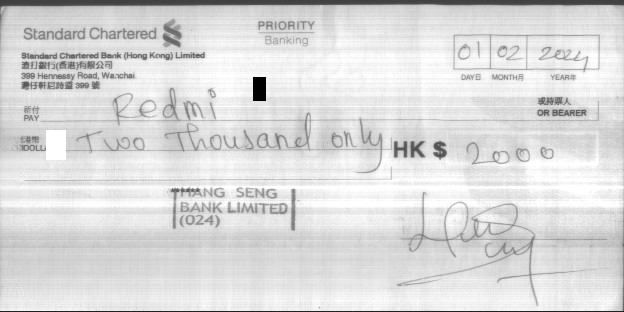 Standard Chartered
PRIORITY
Banking
Standard Chartered Bank (Hong Kong) Limited
渣打銀行(香港)有限公司
399 Hennessy Road, Wanchai
灣仔軒尼詩道 399 號
01 02 2024
DAY日 MONTH月 YEAR年
祈付
PAY Redmi
或持票人
OR BEARER
港幣
Two Thousand only
HK $ 2000
HANG SENG
BANK LIMITED
(024)